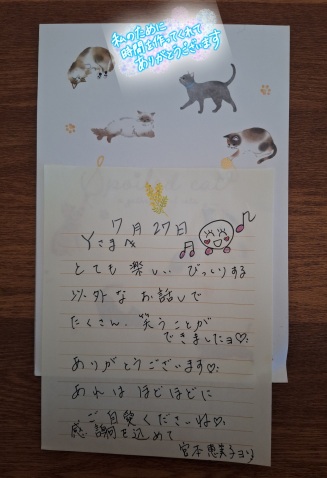 私のために
時間を作ってくれて
ありがとうございます
7月27日
Yさまへ
とても楽しい びっくりする
以外なお話しで
たくさん、笑うことが
できましたョ♡
ありがとうございます♡
あれは ほどほどに
ご自愛くださーね♡
感謝を込めて
宮本恵美子より